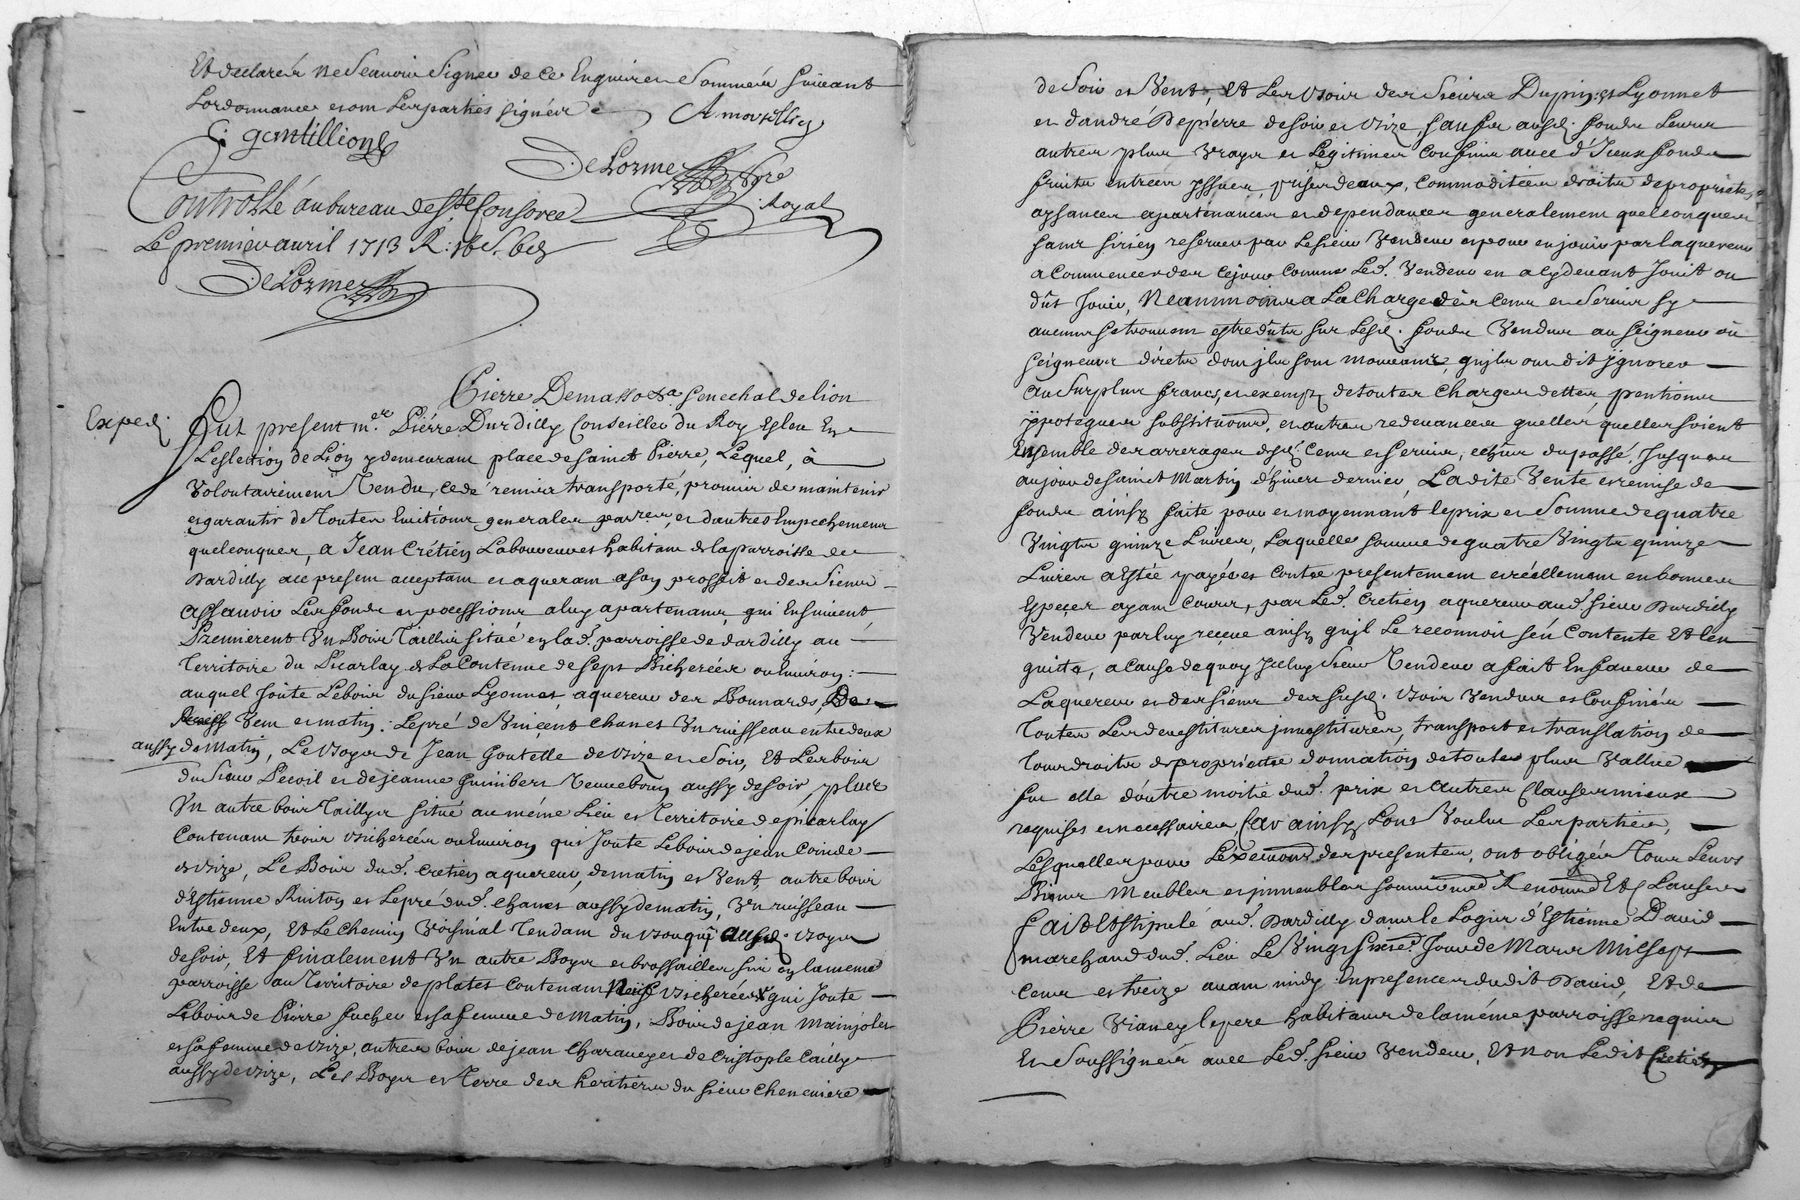 Et declarér ne scavoir signer de ce enquis et sommér suivant
Lordonnance et ont les parties signér
A mortillier
C: gentillion
DeLorme No.re
Royal
Controllé au bureau de Ste Consorce
Le premier avril 1713 R: 18 s. 6 d
DeLorme
Pierre Demasso &a senechal de lion
Exped.
Fut present m.er Piérre Durdilly Conseiller du Roy Esleu En
Leslection de Lion y demeurant place de sainct Pierre, Lequel, à
Volontairement Vendu, cedé remis et transporté, promis de maintenir
et garantir de toutes Evitions generales par.res, et d'autres Empechemens
quelconques, a Jean Crétien Laboureur et habitant de la parroisse de
Dardilly icy present acceptant et aquerant a son proffit et des siens
assavoir Les fonds et pocessions a luy apartenans, qui Ensuivent
Premierent Un Bois Taillis situé en lad. parroisse de dardilly au
Territoire du Picarlay de La Contenue de sept Bicherées ou Environ:
auquel Joute Le bois du sieur Lyonnet, aquereur des Bonnards De
Vent et matin: Le pré de Vincent Chanet Un ruisseau entre deux
aussy de Matin, Le Boyer de Jean Goutelle de Bize et Soir, Et Les bois
du Sieur Pecoil et de jeanne Guinibert Vennebourg aussy de soir, plus
Un autre bois Taillyr situé au méme Lieu et Territoire de picarlay
Contenant trois bicherées ou Environ qui Joute Le bois de jean Coinde
de bize, Le Bois dud. Crétien aquereur, de matin et Vent, autre bois
d'Estienne Ruiton et Le pré dud. Chanet aussy de matin, Un ruisseau
Entre deux, Et Le Chemin Voisinal Tendant du Bouquis aussy boyer
de soir, Et finalement Un autre Boyer et brossailles sis en la meme
parroisse au Territoire de plates Contenant Neuf bicherées qui Joute
Le bois de Piérre fucher et sa femme de Matin, Bois de jean Mainjolet
et sa femme de bize, autres bois de jean Charavey et de Cristople Cailly
aussy de bize, Les Boyer et Terre des heritiers du sieur Cheneviere
de Soir et Vent, Et Les bois des Sieurs Dupin et Lyonnet
et d'andré Depierre de soir et bize, sauf a ausd. fonds Leurs
autres plus Vrays et Legitimes Confins avec d'Jceux fonds
fruits entrées yssues, prises deaux, commoditées droits de propriete,
aysances apartenances et dependances generalement quelconques
sans s'i rien reserver par le sieur Vendeur et pour en jouir par laquereur
a commencer des ce jour comme Led. Vendeur en a cy devant Jouit ou
dût Jouir, Neanmoins a La Charge des Cens et Servis sy
aucuns se trouvent estre dûts sur Lesd. fonds Vendus au seigneur ou
seigneurs directs dont jls sont mouvans, qu'jls ont dit ygnorer
au Surplus francs, et exempt de toutes Charges dettes pentions
ypoteques substitutions, et autres redevances quelles quelles soient
Ensemble des arrerages desd. Cens et servis, echus du passé, Jusques
au jour de sainct Martin d'hiver dernier, La dite Vente et remise de
fonds ainsy faite pour et moyennant le prix et Somme de quatre
Vingts quinze Livres, Laquelle somme de quatre Vingts quinze
Livres a Estée payée et Contée presentement et réellement en bonnes
Especes ayant Cours, par Led. Crétien aquereur aud. sieur Durdilly
Vendeur par luy reçeue ainsy qu'jl Le reconnoit sén contente Et l'en
quitte, a cause de quoy Jceluy Sieur Vendeur a fait En faveur de
Laquereur et des siéns des susd. bois Vendus et Confinés
Toutes Les devestitures jnvestitures, transport et translation de
Tous droits de proprieté donnation de toute plus Vallue
fut elle d'outre moitié dud. prix et Autres Clauses mieux
requises et necessaires, Car ainsy Lont Voulu Les parties,
Lesquelles pour L'exeution des presentes, ont obligér Tous Leurs
Biens Meubles et jmmeubles soumissions Renonc.ns Et Clauses
Fait Et stipulé aud. Dardilly dans le Logis d'Estienne David
marchand dud. Lieu Le Vingt sixie. Jour de Mars Mil sept
Cens et treize avant midy En presence dudit David, Et de
Pierre Vianey le pere habitans de la méme parroisse requis
Et Soussignér avec Led. sieur Vendeur, Et non Ledit Crétien